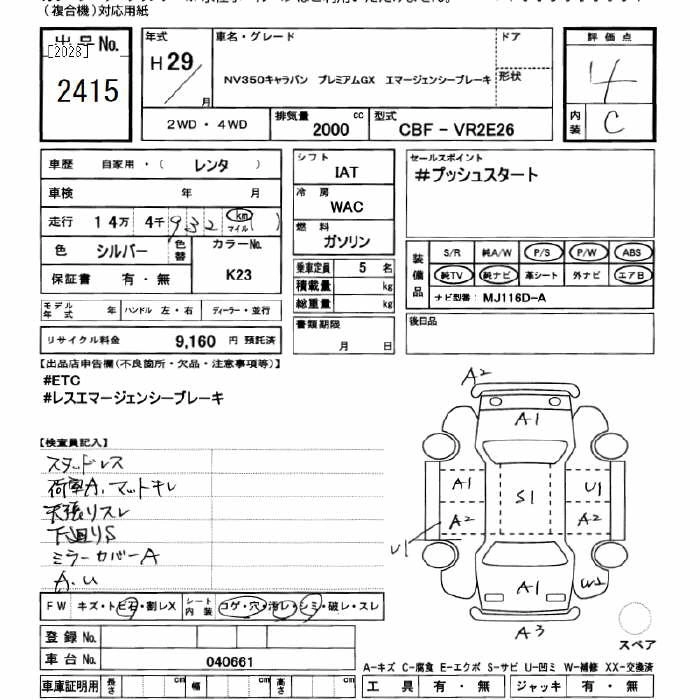 （複合機）対応用紙
出品No.
[2028]
2415
年式
H29
月
車名・グレード
NV350キャラバン プレミアムGX エマージェンシーブレーキ
ドア
形状
評価点
4
内装
C
2WD・4WD
排気量
2000
cc
型式
CBF－VR2E26
車歴 自家用・（ レンタ ）
車検 年 月
走行 14万 4千 932 km マイル（ ）
色 シルバー 色替
カラーNo.
K23
保証書 有・無
モデル年式 年 ハンドル 左・右 ディーラー・並行
リサイクル料金 9,160 円 預託済
シフト
IAT
冷房
WAC
燃料
ガソリン
乗車定員 5 名
積載量 kg
総重量 kg
書類期限
月 日
セールスポイント
#プッシュスタート
装備品
S/R 純A/W P/S P/W ABS
純TV 純ナビ 革シート 外ナビ エアB
ナビ型番: MJ116D-A
後日品
【出品店申告欄(不良箇所・欠品・注意事項等)】
#ETC
#レスエマージェンシーブレーキ
【検査員記入】
スタッドレス
荷室A、マットキレ
天張リスレ
下廻りS
ミラーカバーA
A.U
FW キズ・トビ石・割レX
シート内装 コゲ・穴・汚レ・シミ・破レ・スレ
登録No.
車台No. 040661
車庫証明用 長さ cm 幅 cm 高さ cm
A2
A1
A1
S1
U1
A2
A2
U1
A1
A3
スペア
A-キズ C-腐食 E-エクボ S-サビ U-凹ミ W-補修 XX-交換済
工具 有・無 ジャッキ 有・無